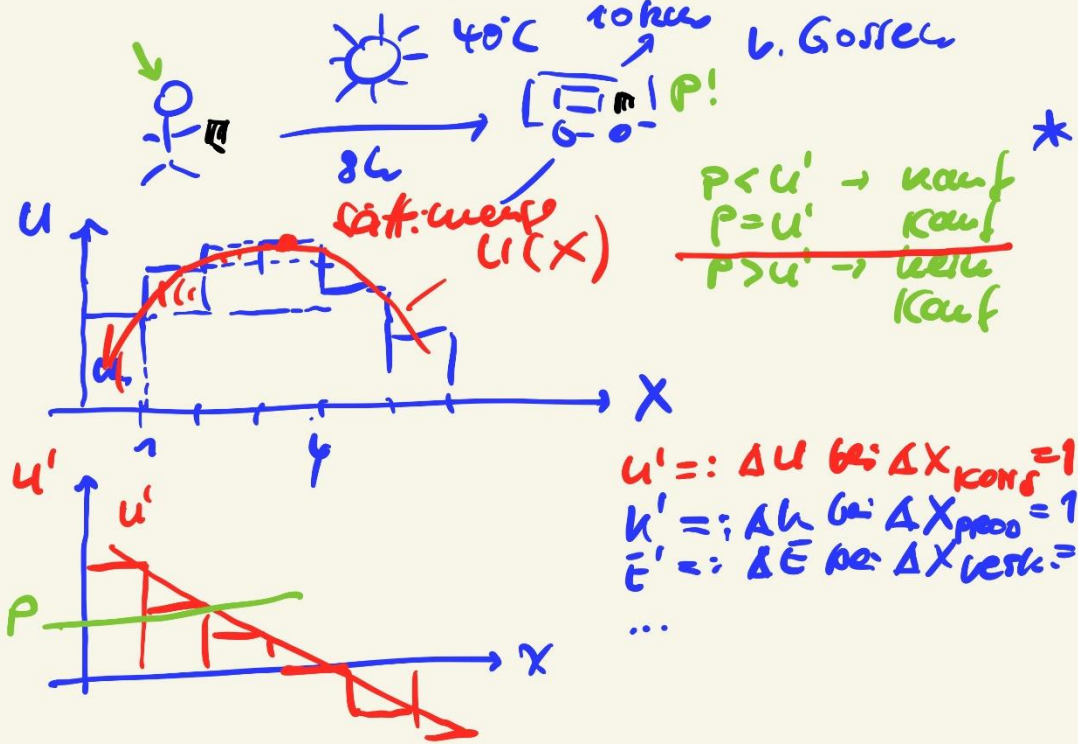 40°C
10 km
v. Gossen
P!
8h
*
P < U' → Kauf
P = U' Kauf
P > U' → kein
Kauf
Sätt.menge
U(X)
U
X
1
4
U' =: ΔU bei ΔX Kons = 1
K' =: ΔK bei ΔX PROD = 1
E' =: ΔE bei ΔX Verk. =
...
U'
U'
P
X